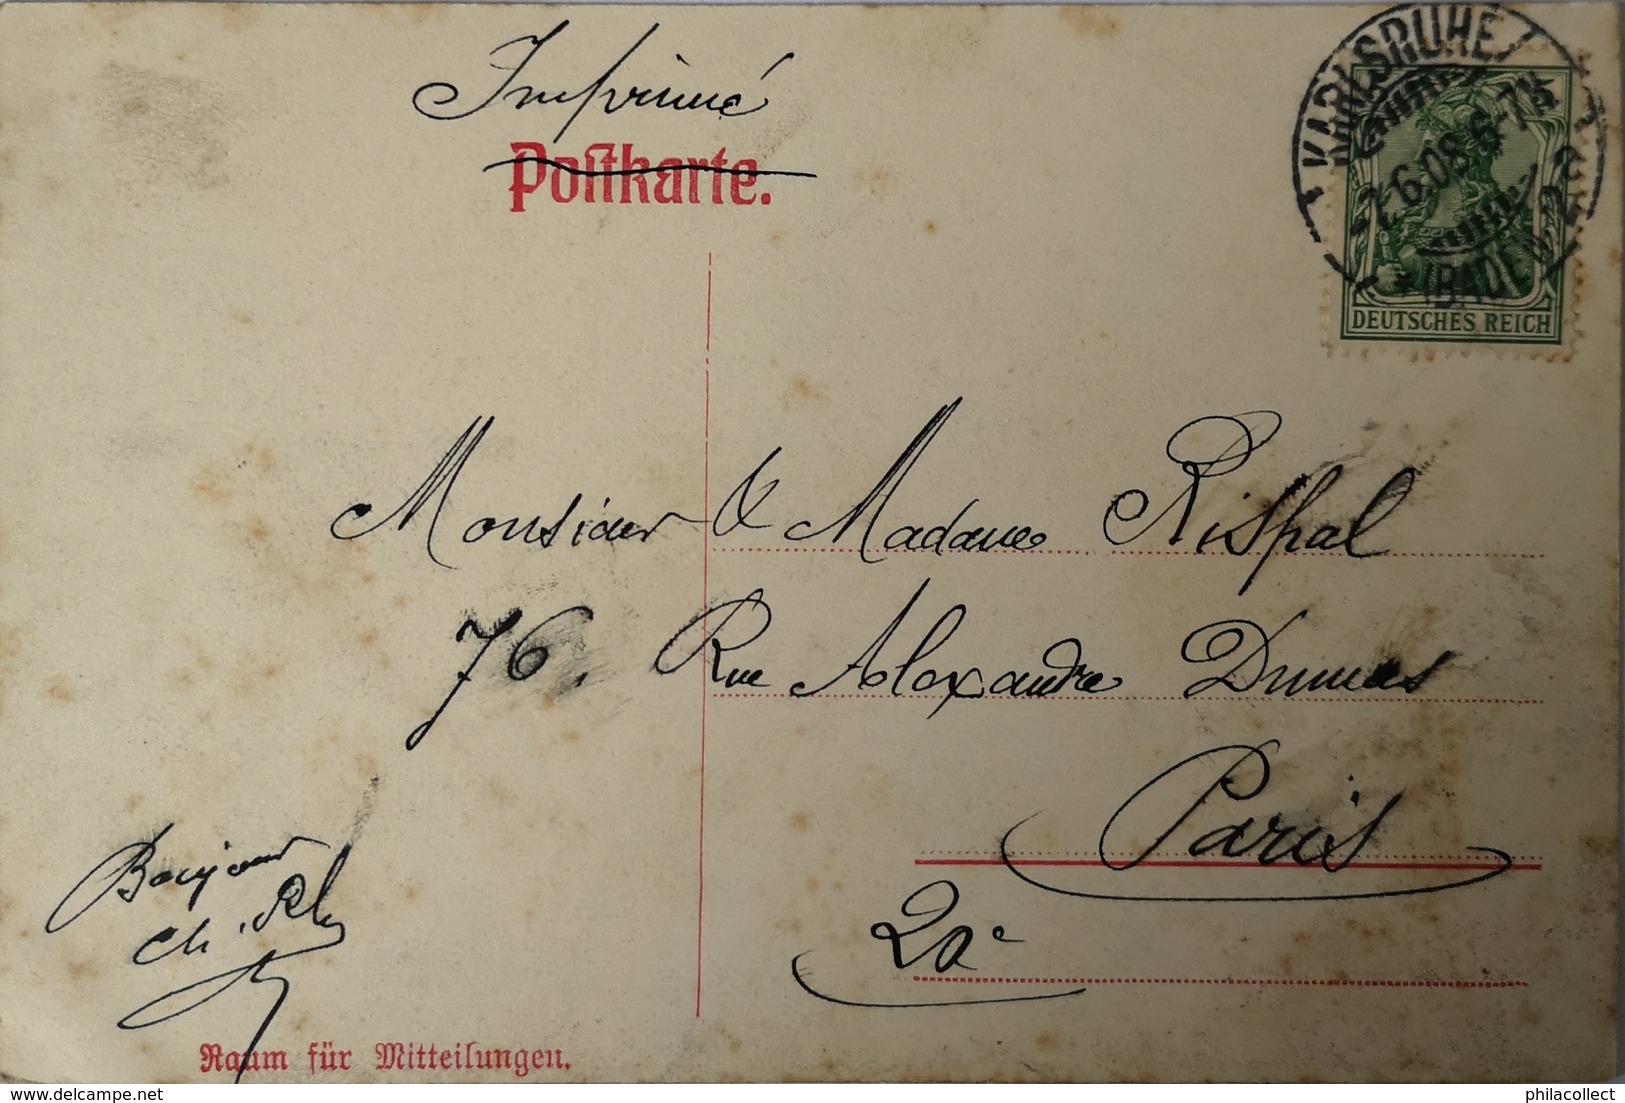 Imprimé
Postkarte.
KARLSRUHE
(BADEN)
DEUTSCHES REICH
Monsieur & Madame Rispal
76, Rue Alexandre Dumas
Paris
20e
Bonjour
Raum für Mitteilungen.
https://www.delcampe.net
philacollect